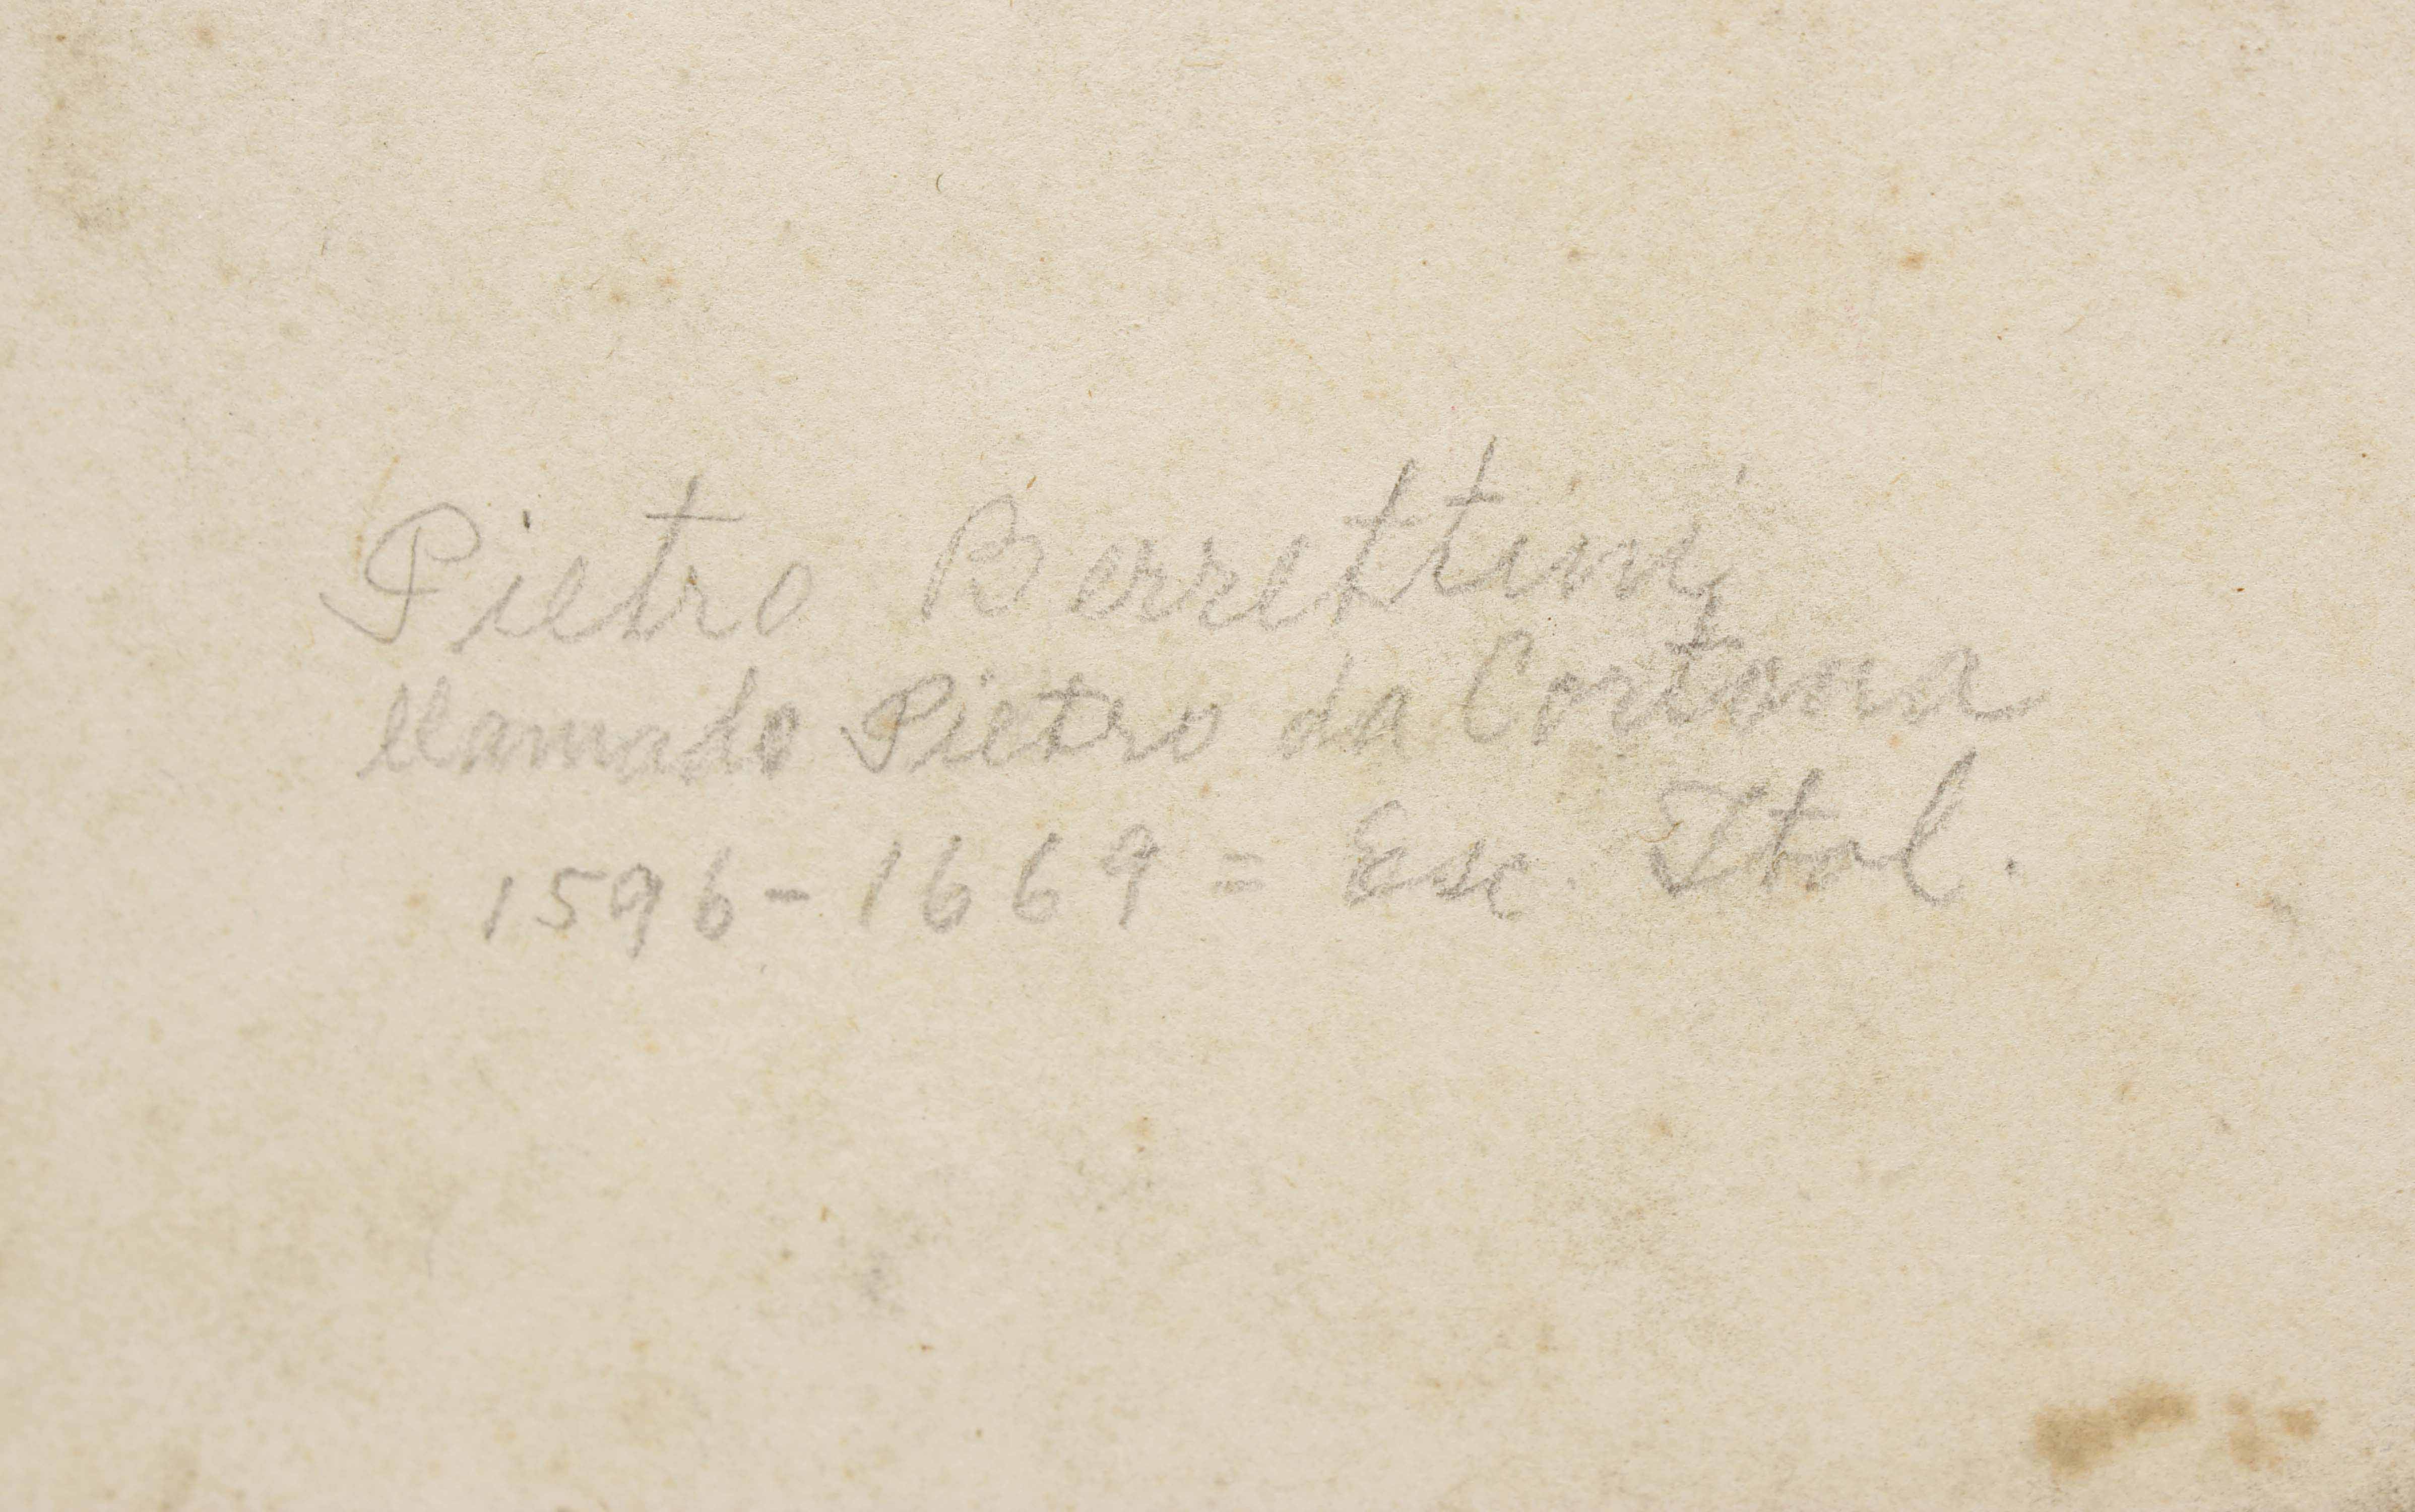 Pietro Berrettini,
llamado Pietro da Cortona
1596 - 1669 = Esc. Ital.